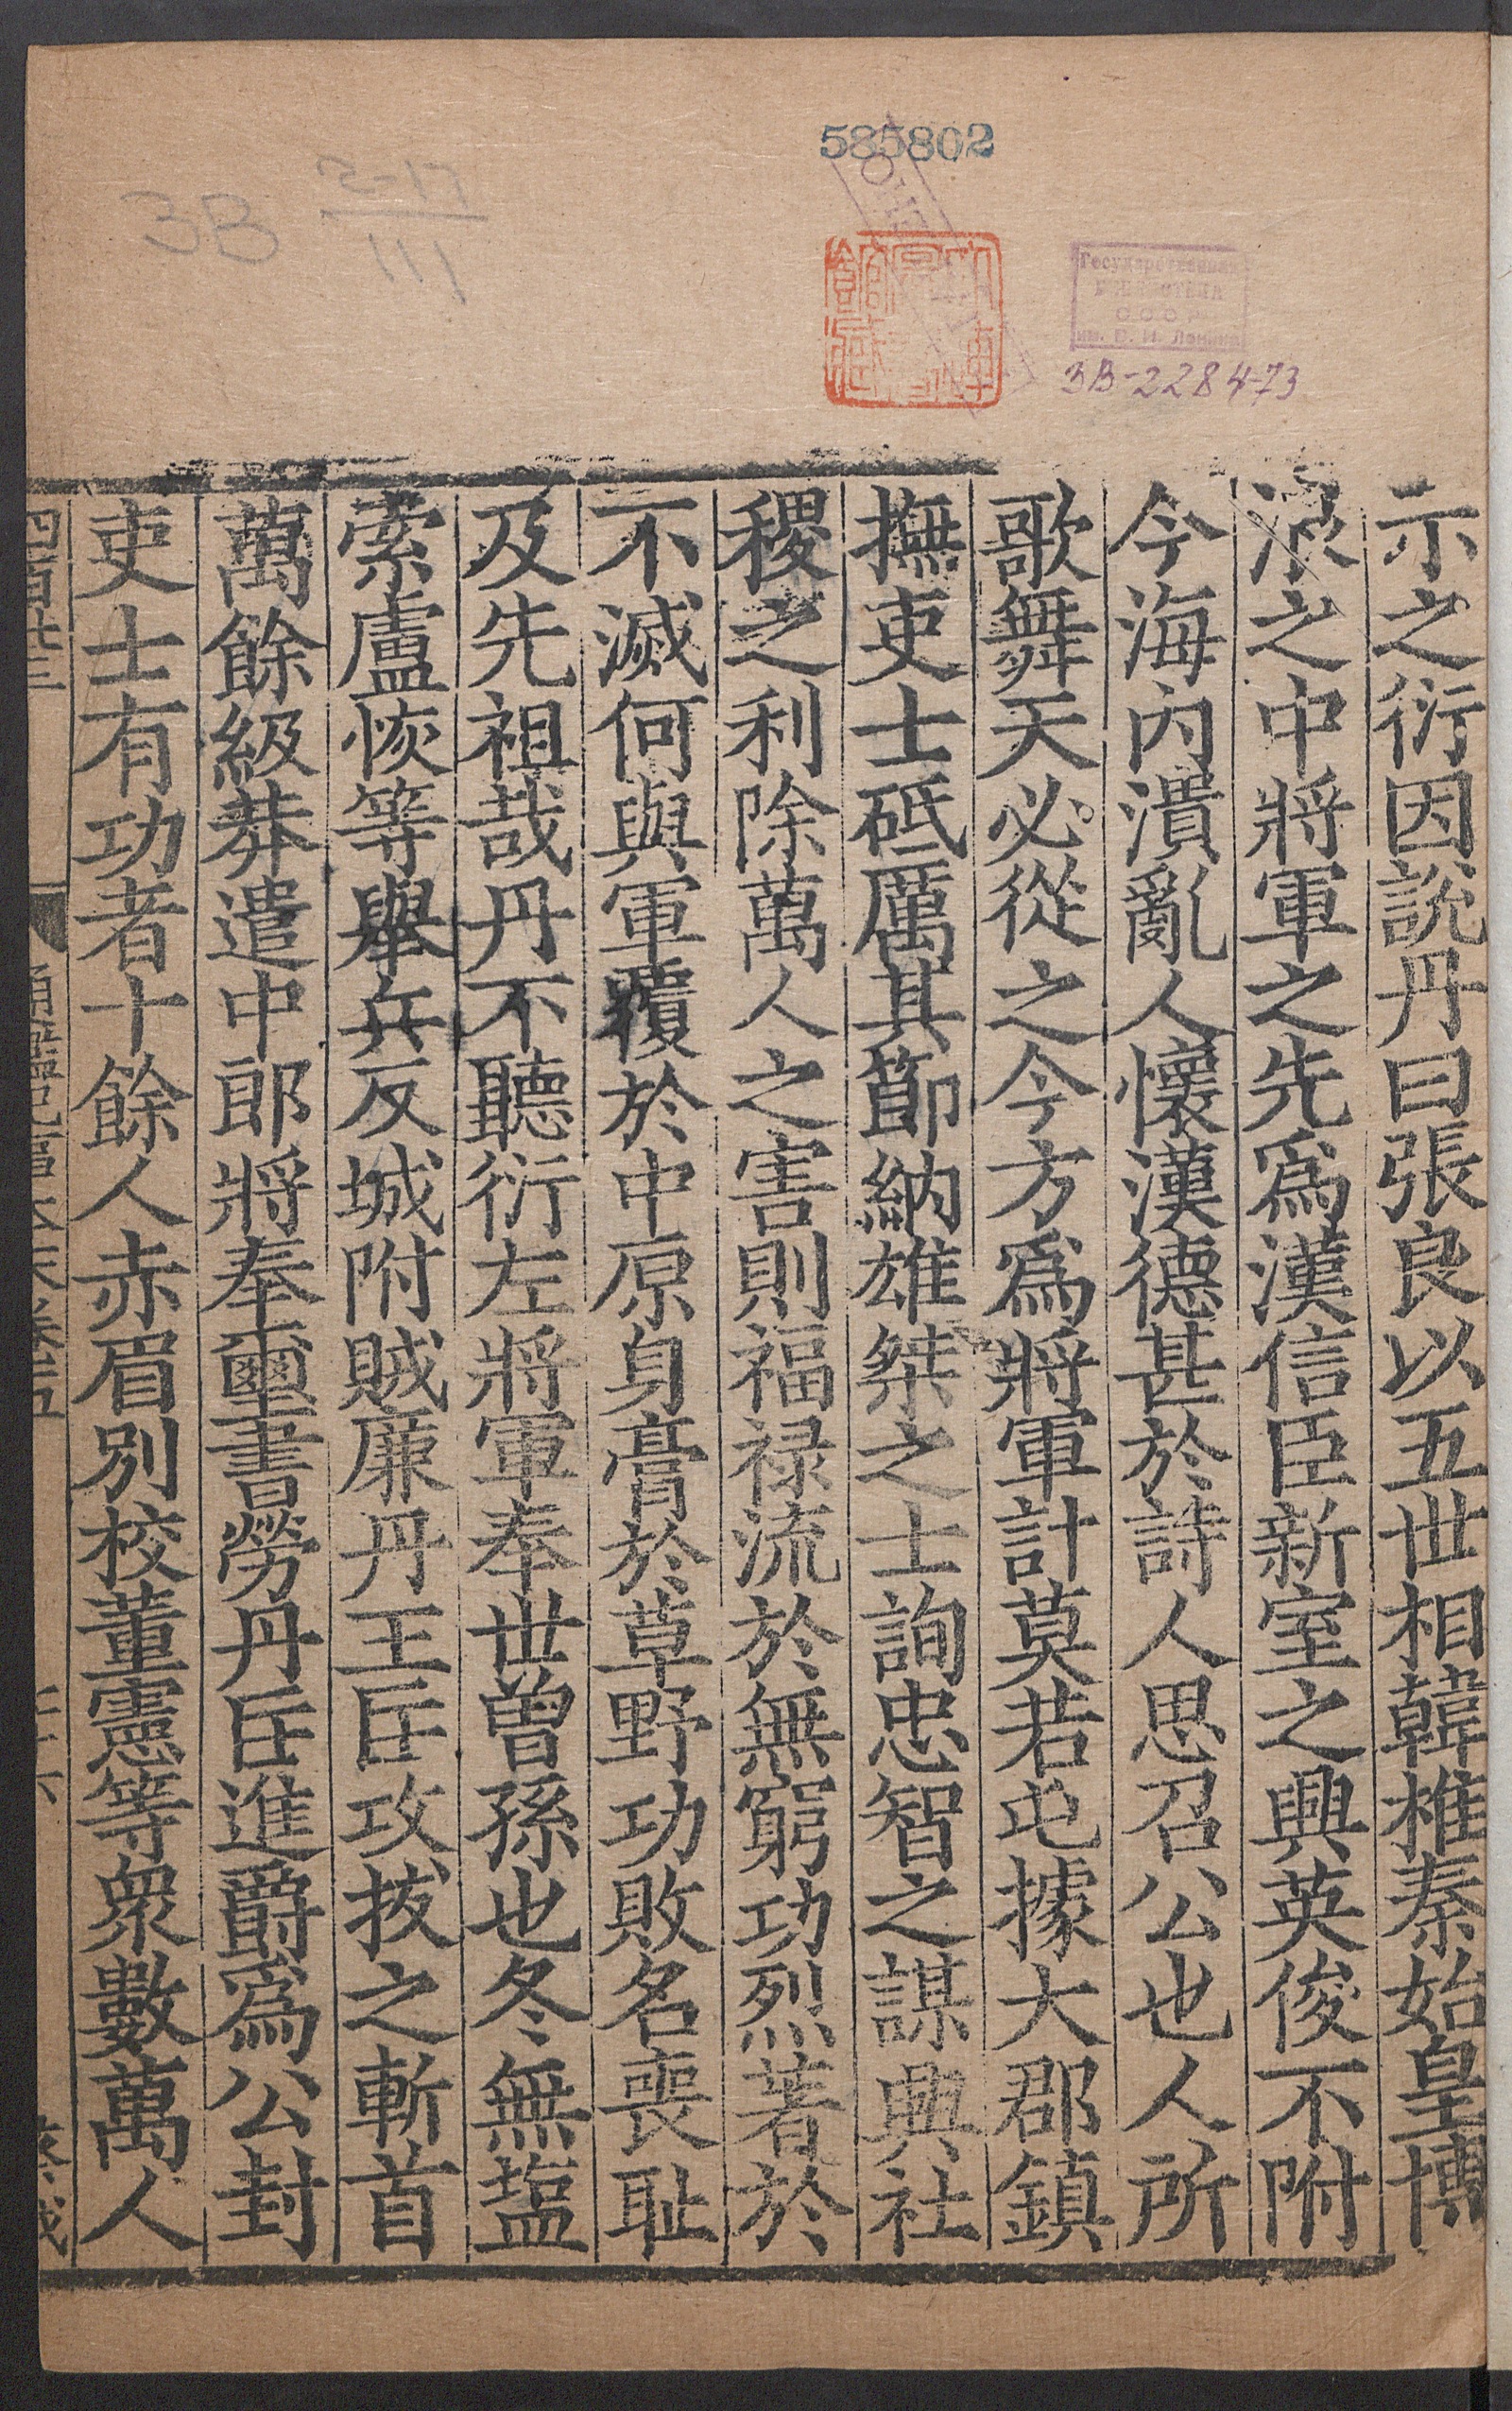 585802
3B
111
Государственная
БИБЛИОТЕКА
СССР
им. В. И. Ленина
3В-2284-73
示之衍因說丹曰張良以五世相韓椎秦始皇博
浪之中將軍之先爲漢信臣新室之興英俊不附
今海内潰亂人懷漢德甚於詩人思召公也人所
歌舞天必從之今方爲將軍計莫若屯據大郡鎮
撫吏士砥厲其節納雄桀之士詢忠智之謀興社
稷之利除萬人之害則福禄流於無窮功烈著於
不滅何與軍覆於中原身膏於草野功敗名喪耻
及先祖哉丹不聽衍左將軍奉世曾孫也冬無塩
索盧恢等舉兵反城附賊廉丹王匡攻拔之斬首
萬餘級莽遣中郎將奉璽書勞丹匡進爵爲公封
吏士有功者十餘人赤眉别校董憲等衆數萬人
四百廿三